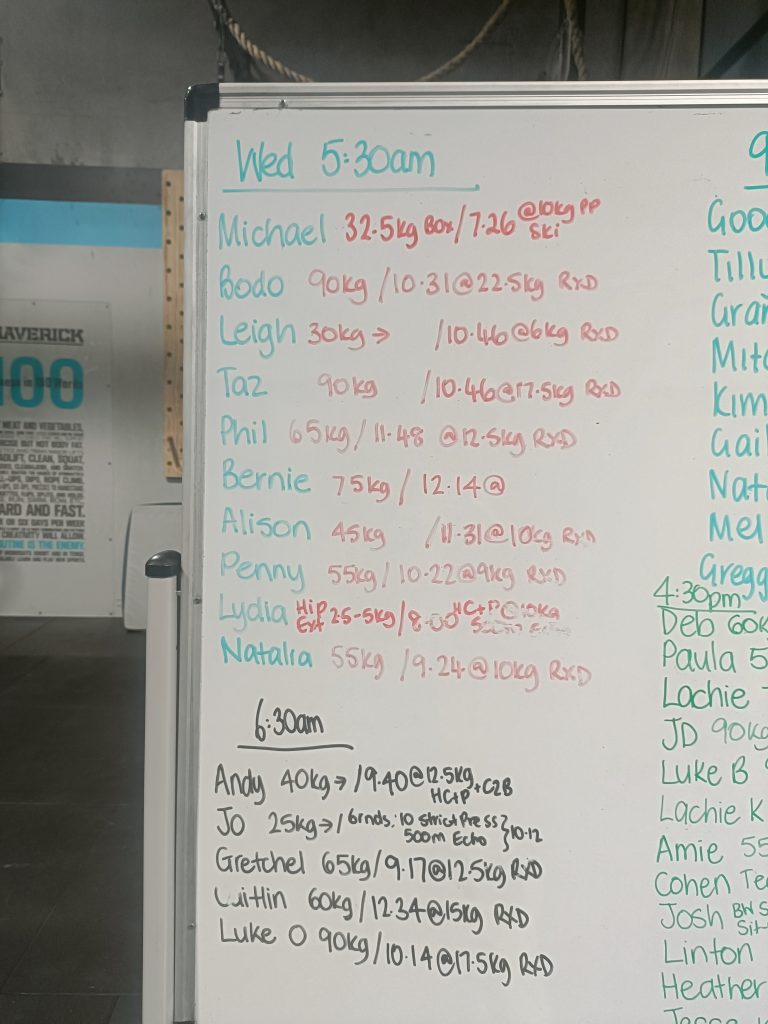 Wed 5:30am
Michael 32.5kg Box/7.26 @10kg PP Ski
Bodo 90kg /10.31@22.5kg RxD
Leigh 30kg → /10.46@6kg RxD
Taz 90kg /10.46@17.5kg RxD
Phil 65kg/11.48 @12.5kg RxD
Bernie 75kg/ 12.14@
Alison 45kg /11.31@10kg RxD
Penny 55kg/10.22@9kg RxD
Lydia Hip Ext 25-5kg/8.00 HC+P@10kg 500m
Natalia 55kg /9.24@10kg RxD
6:30am
Andy 40kg→/9.40@12.5kg HC+P+C2B
Jo 25kg→/6rnds: 10 strict Press 500m Echo }10.12
Gretchel 65kg/9.17@12.5kg RxD
Caitlin 60kg/12.34@15kg RxD
Luke O 90kg/10.14@17.5kg RxD
9
Goo
Tillu
Gra
Mitc
Kim
Gail
Nat
Mel
Gregg
4:30pm
Deb 60k
Paula 5
Lachie
JD 90kg
Luke B
Lachie K
Amie 55
Cohen Te
Josh BW S
Sit-
Linton
Heather
AVERICK
100
MEAT AND VEGETABLES,
ALIFT, CLEAN, SQUAT,
ARD AND FAST.
OR SIX DAYS PER WEEK
CREATIVITY WILL ALLOW.
UTINE IS THE ENEMY.